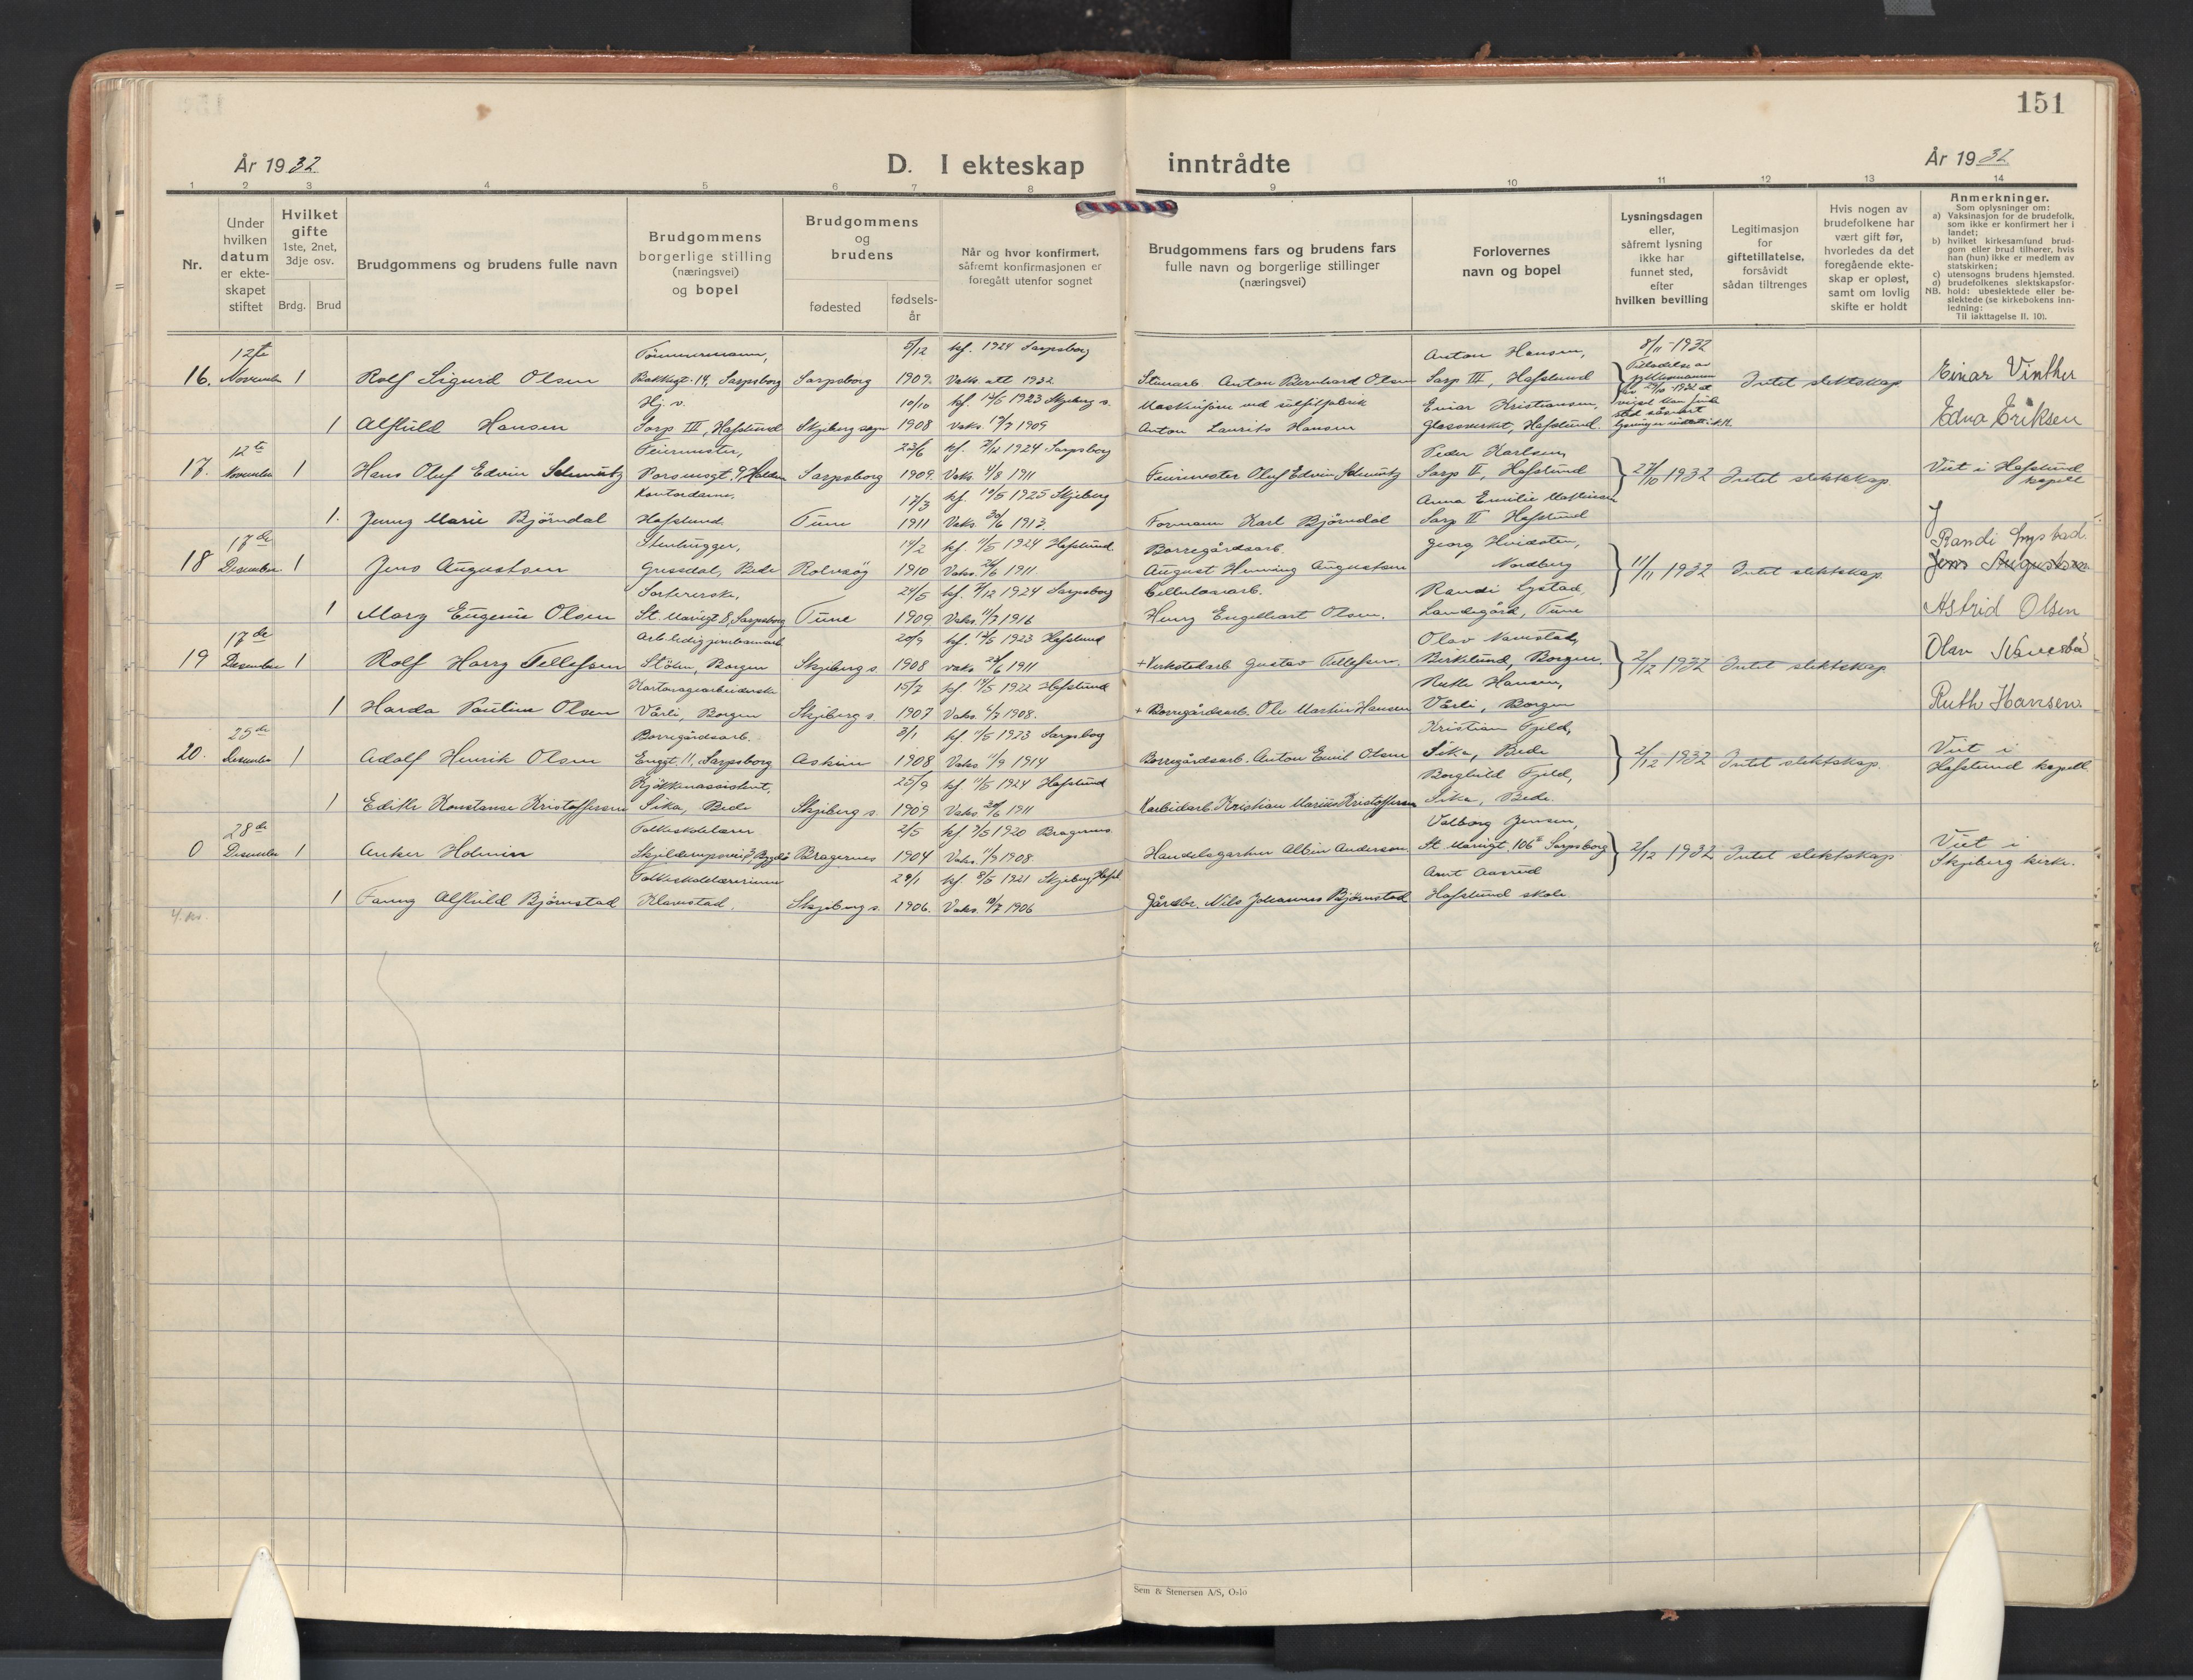 151
År 1932.
D. I ekteskap inntrådte
År 1932
1 2 3 4 5 6 7 8 9 10 11 12 13 14
Nr.
Under hvilken datum er ekteskapet stiftet
Hvilket gifte 1ste, 2net, 3dje osv.
Brdg. Brud
Brudgommens og brudens fulle navn
Brudgommens borgerlige stilling (næringsvei) og bopel
Brudgommens og brudens
fødested
fødsels-år
Når og hvor konfirmert, såfremt konfirmasjonen er foregått utenfor sognet
Brudgommens fars og brudens fars fulle navn og borgerlige stillinger (næringsvei)
Forlovernes navn og bopel
Lysningsdagen eller, såfremt lysning ikke har funnet sted, efter hvilken bevilling
Legitimasjon for giftetillatelse, forsåvidt sådan tiltrenges
Hvis nogen av brudefolkene har vært gift før, hvorledes da det foregående ekteskap er opløst, samt om lovlig skifte er holdt
Anmerkninger.
Som oplysninger om:
a) Vaksinasjon for de brudefolk, som ikke er konfirmert her i landet;
b) hvilket kirkesamfund brudgom eller brud tilhører, hvis han (hun) ikke er medlem av statskirken;
c) utensogns brudens hjemsted.
d) brudefolkenes slektskapsforhold: ubeslektede eller beslektede (se kirkebokens innledning:
NB. Til iakttagelse II. 10).
12te Tømmermann, 5/12 kf. 1924 Sarpsborg Anton Hansen, 8/11-1932
16. November 1 Rolf Sigurd Olsen Bakkegt. 14, Sarpsborg Sarpsborg 1909. Vaks. att 1932 Stenarb. Anton Bernhard Olsen Sarp III, Hafslund Intet slektskap Einar Vinther
Hj. v. 10/10 kf. 1923 Skjeberg s. Maskinfører ved sulfitfabrik Einar Kristiansen,
1 Alfhild Hansen Sarp III, Hafslund Skjeberg sogn 1908 Vaks. 1909 Anton Laurits Hansen Glassverket, Hafslund. Edna Eriksen
12te Feiermester, 23/6 kf. 1924 Sarpsborg Peder Karlsen,
17. November 1 Hans Oluf Edvin Schmutz Halden Sarpsborg 1909. Vaks. 4/8 1911 Feiermester Oluf Edvin Schmutz Sarp II, Hafslund 27/10 1932 Intet slektskap. Viet i Hafslund kapell
Kontordame, 17/3 kf. 1925 Skjeberg Anna Emilie Mathisen
1. Jenny Marie Bjørndal Hafslund. Tune 1911 Vaks. 30/6 1913. Formann Karl Bjørndal Sarp II Hafslund
17de Stenhugger, 14/2 kf. 1924 Hafslund. Borregårdsarb. Georg Hvidsten, Randi Lystad.
18 Desember 1 Jens Augustsen Grisedal, Bede Rolvsøy 1910 Vaks. 1911. August Henning Augustsen Nordberg 11/11 1932 Intet slektskap. Jens Augustsen
Sorterske, 24/5 kf. 1924 Sarpsborg Cellulosearb. Randi Lystad,
1 Mary Eugenie Olsen St. Mariegt. 8, Sarpsborg Tune 1909 Vaks. 1916 Henry Engelhart Olsen. Landegård, Tune Astrid Olsen
17de Arb.ledig 20/9 kf. 1923 Hafslund Olav Navestad,
19 Desember 1 Rolf Harry Tellefsen Stølen, Borgen Skjeberg s. 1908 Vaks. 1911 + Verkstedarb. Gustav Tellefsen. Birkelund, Borgen. 2/12 1932 Intet slektskap. Olav Navestad
Kartonagearbeiderske 15/7 kf. 1922 Hafslund Ruth Hansen,
1 Harda Pauline Olsen Vårli, Borgen Skjeberg s. 1907 Vaks. 1908. + Borregårdsarb. Ole Martin Hansen Vårli, Borgen Ruth Hansen.
25de Borregårdsarb. 3/1 kf. 1923 Sarpsborg Kristian Fjeld,
20. Desember 1 Adolf Henrik Olsen Enggt. 11, Sarpsborg Askim 1908 Vaks. 11/9 1914 Borregårdsarb. Anton Emil Olsen Sika, Bede 2/12 1932 Intet slektskap. Viet i Hafslund kapell.
Kjøkkenassistent, 25/9 kf. 1924 Hafslund Borghild Fjeld,
1 Edith Konstanse Kristoffersen Sika, Bede Skjeberg s. 1909 Vaks. 1911 Karbidarb. Kristian Marius Kristoffersen Sika, Bede.
28de Folkeskolelærer 2/5 kf. 1920 Bragernes. Valborg Jensen,
0 Desember 1 Anker Holmin Bygdø Bragernes 1904 Vaks. 11/9 1908. Handelsgartner Albin Andersen. St. Mariegt. 106 Sarpsborg 2/12 1932 Intet slektskap Viet i Skjeberg kirke.
Folkeskolelærerinne 29/1 kf. 8/5 1921 Skjeberg Hafsl. Arnt Aaserud
1 Fanny Alfhild Bjørnstad Klavestad. Skjeberg s. 1906. Vaks. 1906 Gårdbr. Nils Johannes Bjørnstad Hafslund skole
Sem & Stenersen A/S, Oslo